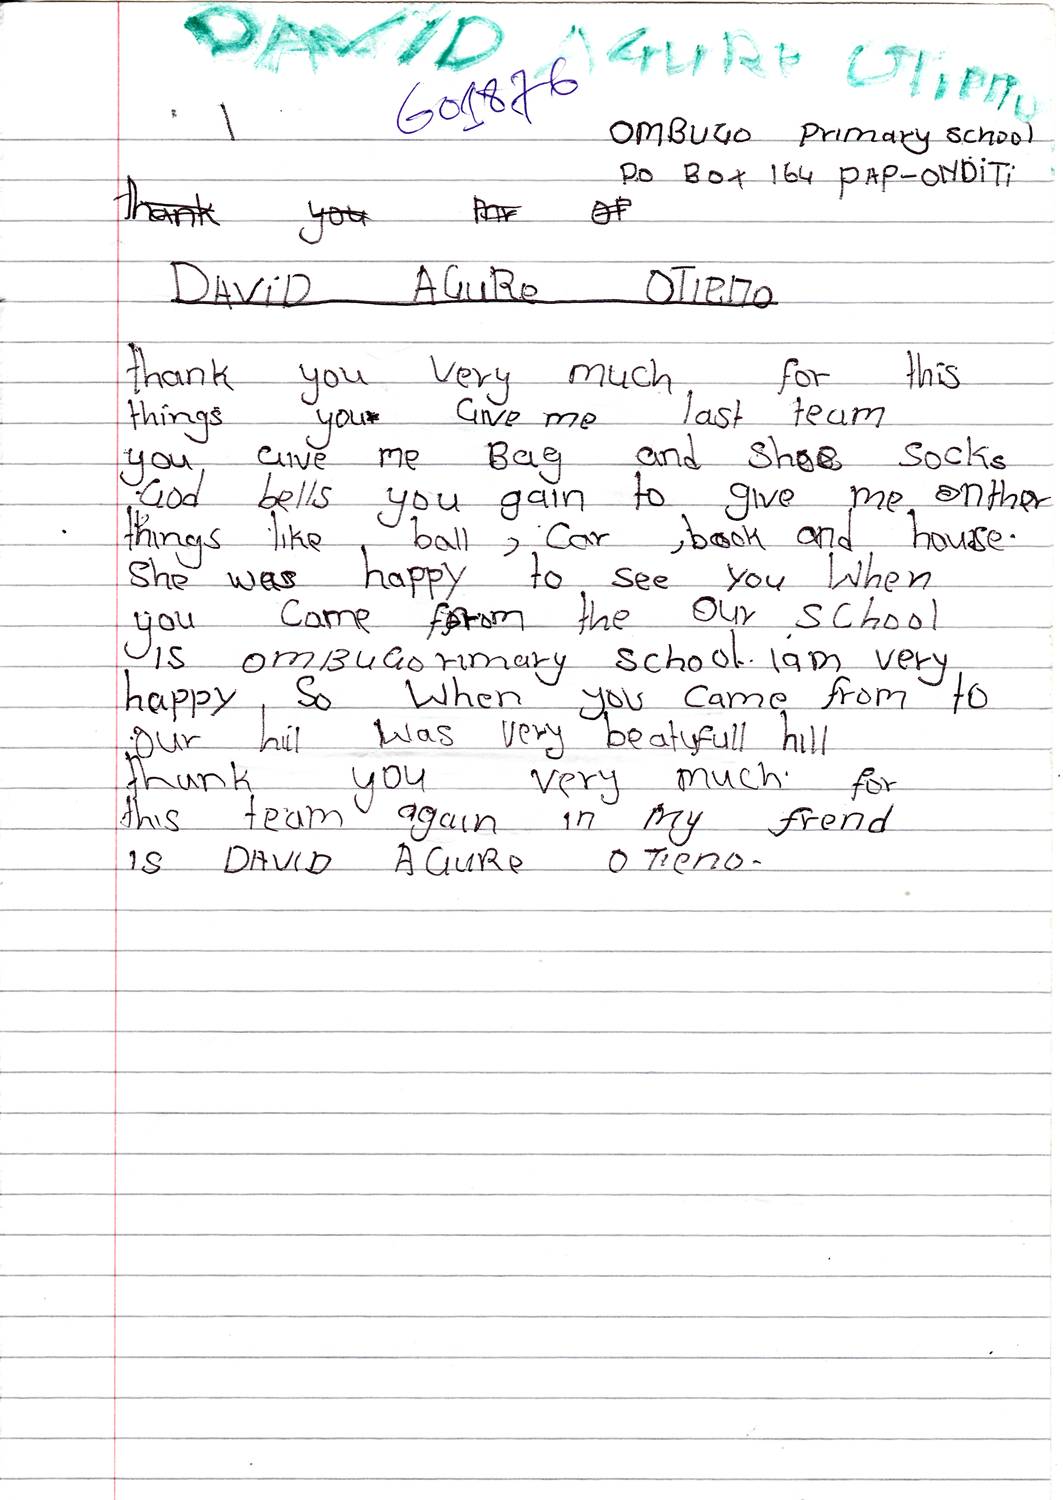 DAVID AGURE OTIENO
601876
OMBUGO Primary school
P.o Box 164 PAP-ONDiTi
thank you for of
DAViD AGURE OTIENO
thank you very much for this
things you Give me last team
you Give me Bag and Shoe Socks
God bells you gain to give me onther
things like, ball, Car, book and house.
She was happy to see you When
you Came from the our school
is OMBUGOrimary school. iam very
happy, So When you came from to
our hiil was very beatyfull hill
thank you very much. for
this team again in my frend
is DAVID AGURE OTIENO.